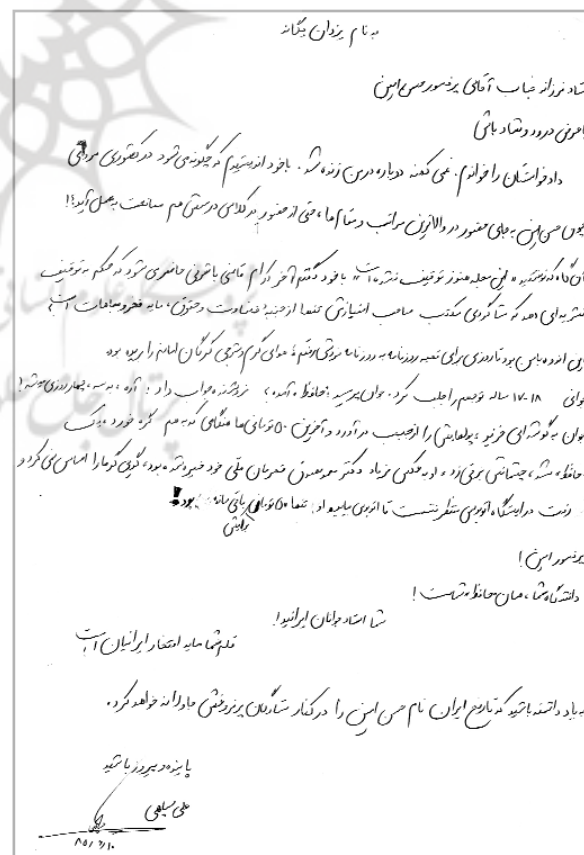 به نام یزدان یگانه
ستاد فرزانه جناب آقای پرفسور حسن امین
با فزونی درود و شاد باش
دادخواستتان را خواندم. غمی کهنه دوباره در من زنده شد. با خود اندیشیدم که چگونه می‌شود در کشوری مردانی
چون حسن امین به جای حضور در والاترین مراتب و مقام‌ها، حتی از حضور در کلاس درسش هم ممانعت به عمل آید؟!
آن گاه که نوشتید «این مجله هنوز توقیف نشده است» با خود گفتم آخر کدام قاضی باشرفی حاضر می‌شود که حکم به توقیف
نشریه‌ای دهد که شاگردی مکتب صاحب امتیازش تنها از جنبهٔ قضاوت و حقوق، مایه فخر و مباهات است؟
این اندوه با من بود تا روزی برای تهیه روزنامه به روزنامه فروشی رفتم؛ هوای گرم و شرجی گرگان امانم را بریده بود
جوانی ۱۸-۱۷ ساله توجهم را جلب کرد. جوان پرسید: حافظ؟ آمده؟ فروشنده جواب داد: آره، به سه، چهار روزی میشه!
جوان به گوشه‌ای خزید، پولهایش را از جیب درآورد و آخرین ۵۰ تومانی‌ها هنگامی که به هم گره خورد و یک
حافظ، شد، چشمانش برقی زد، او به عکس زنده یاد دکتر محمد مصدق قهرمان ملی خود خیره شده بود، گویی گرما را احساس نمی‌کرد و
رفت در ایستگاه اتوبوس منتظر نشست تا اتوبوس بیاید او تنها ۵۰ تومان برایش باقی مانده بود!
پرفسور امین!
دانشگاه شما، همان حافظ شماست!
شما استاد جوانان ایرانید!
قلم شما مایه افتخار ایرانیان است
به یاد داشته باشید که تاریخ ایران نام حسن امین را در کنار ستارگان پرفروغش جاودانه خواهد کرد.
پاینده و پیروز باشید
علی
۸۵/۳/۱۰